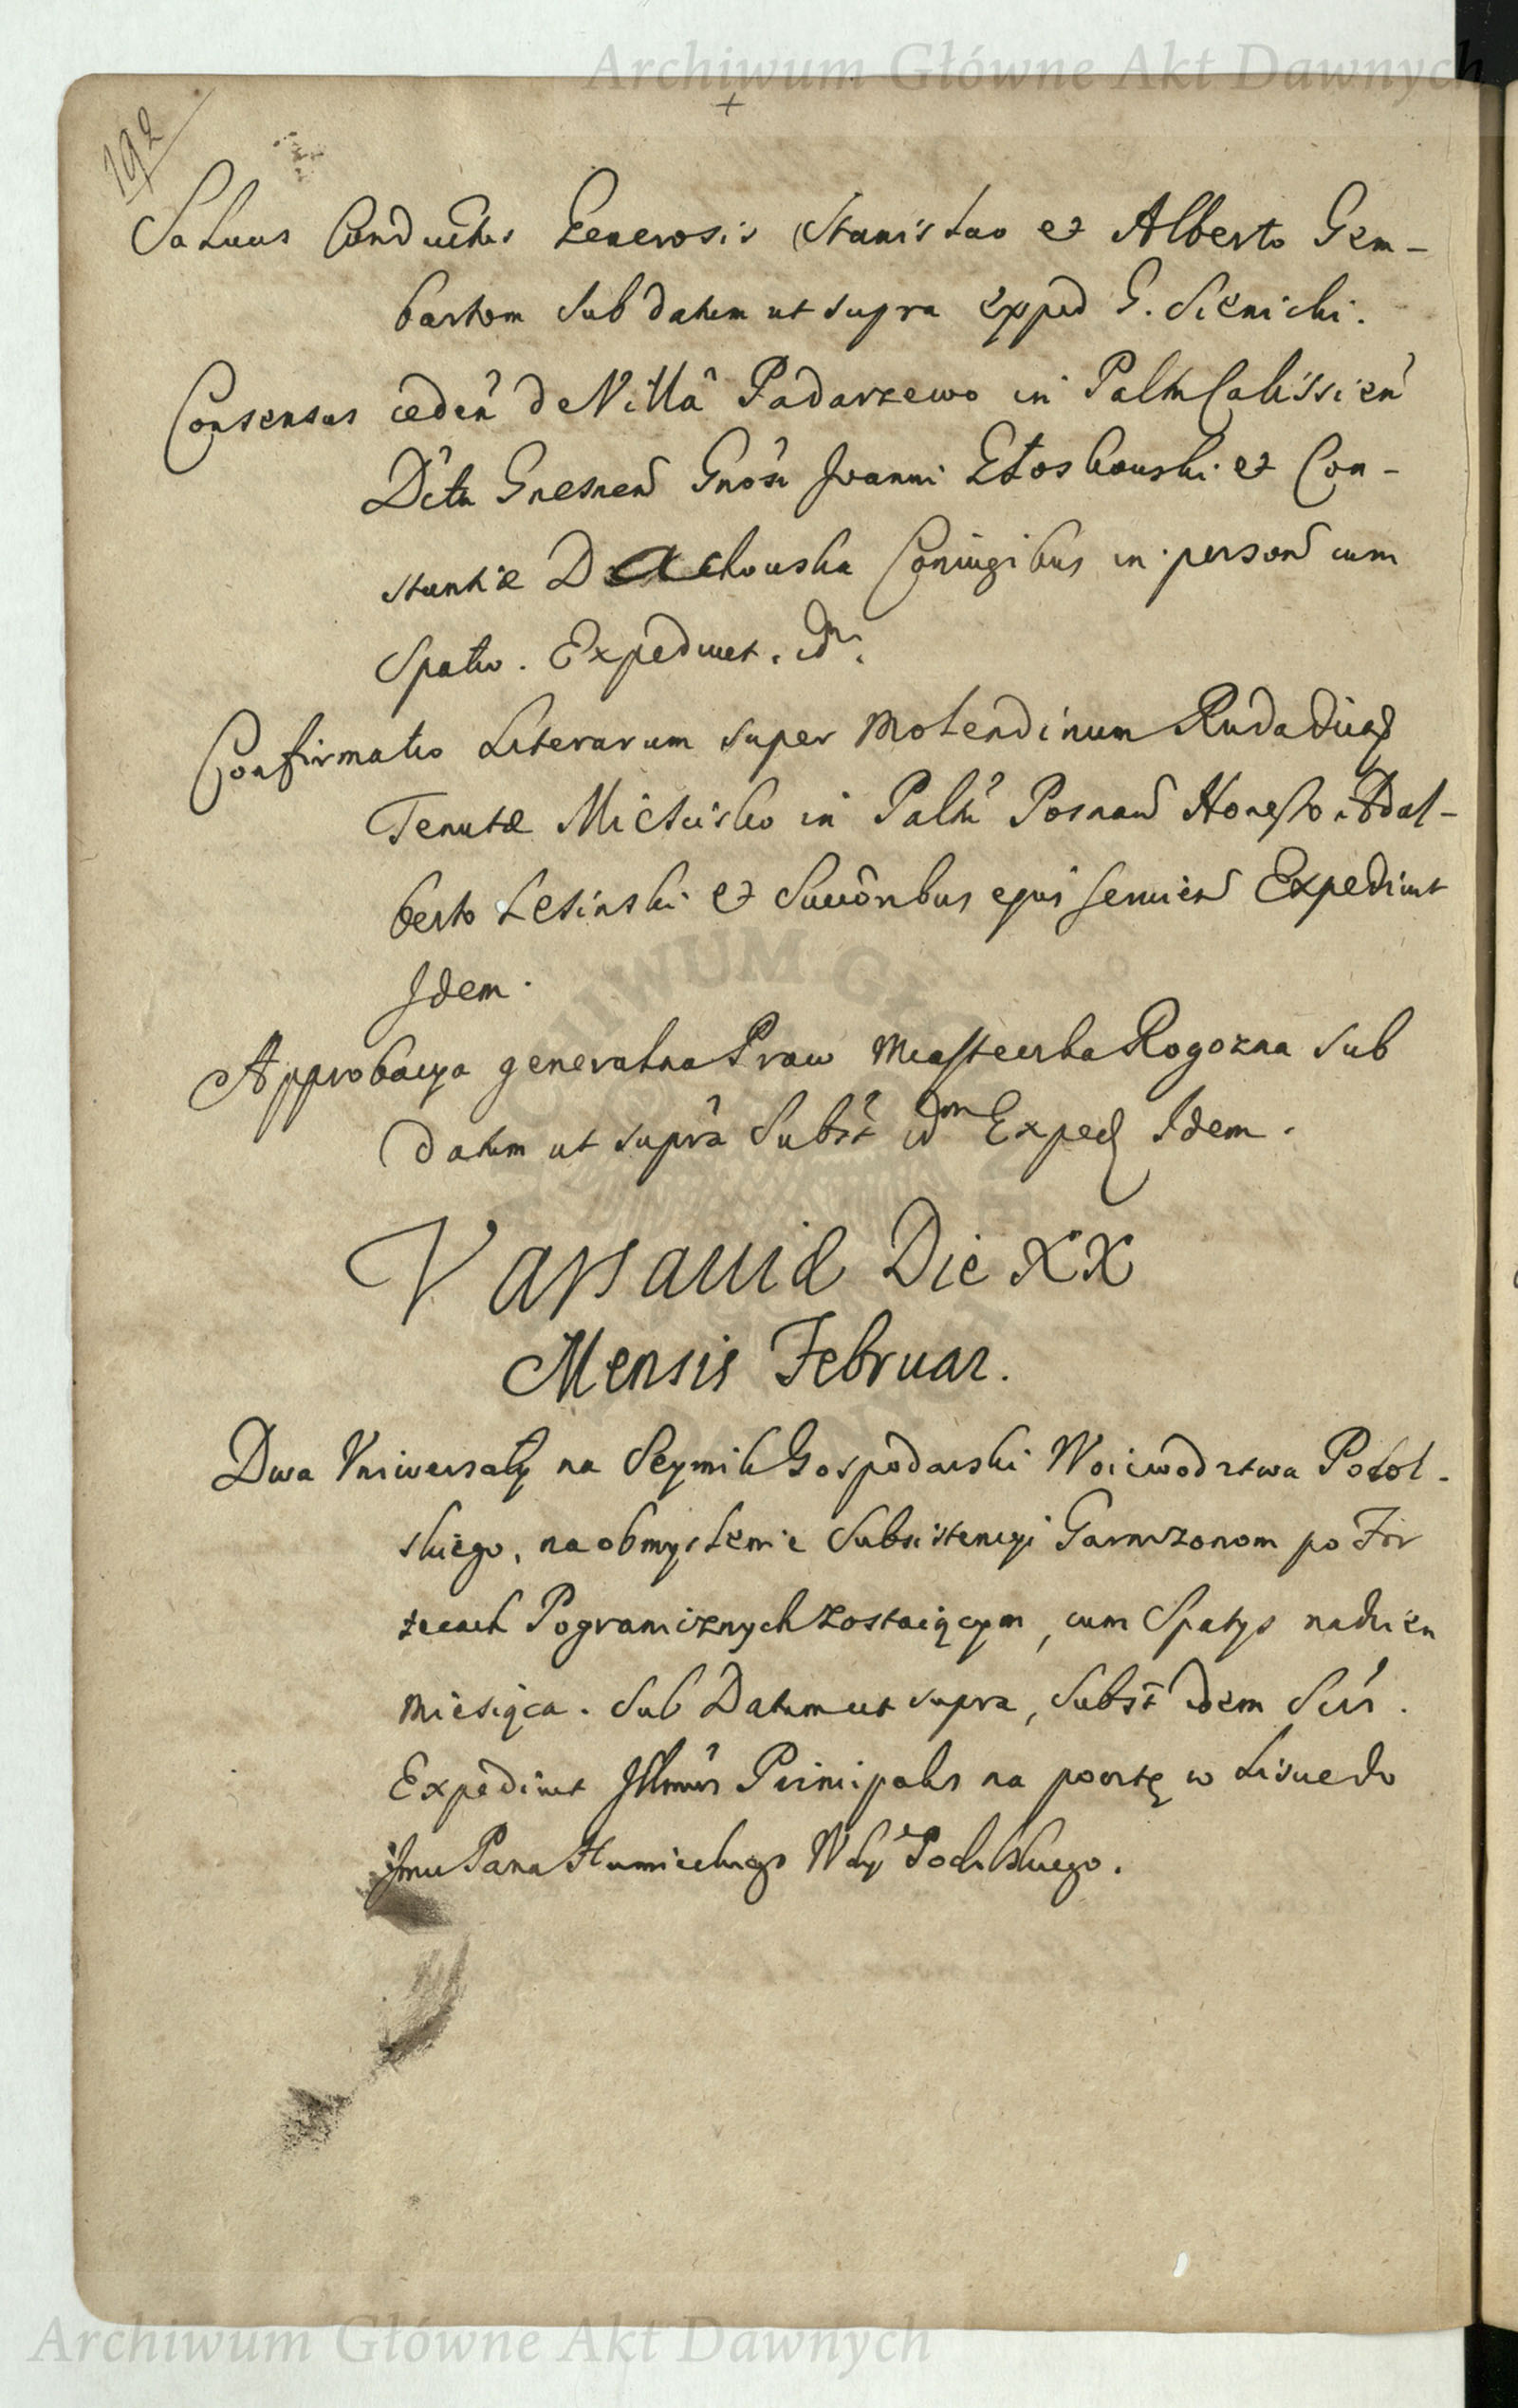 Archiwum Główne Akt Dawnych
192
Saluus Conductus Generosis Stanislao et Alberto Gem-
bartom Sub datum ut supra exped G. Sienicki.
Consensus ceden de Villa Padarzewo in Paltu Calissien
Dictu Gnesnen Gnosi Joanni Głoskouski et Con-
stantiæ Dachouska Coniugibus in person cum
Spatio. Expediuet. idm.
Confirmatio Literarum super Molendinum Ruda
Tenutæ in Paltu Posnan Honesto Adal-
berto Lesinski et Succoribus ejus seruien Expediuit
Idem.
Approbacya generalna Praw Miasteczka Rogozna Sub
datum ut supra Subst idm Exped Idem.
Varsauiæ Die XX
Mensis Februar.
Dwa Vniwersały na Seymik Gospodarski Woiewodztwa Podol-
skiego, na obmyslenie Subsistencyi Garnizonom po For
tecach Pogranicznych zostaiącym, cum Spatys
miesiąca. Sub Datum ut supra, Subst idem Ser.
Expediuit Illmus Principalis na pocztę w
Jmu Pana Humieckiego Wdy Podolskiego.
Archiwum Główne Akt Dawnych